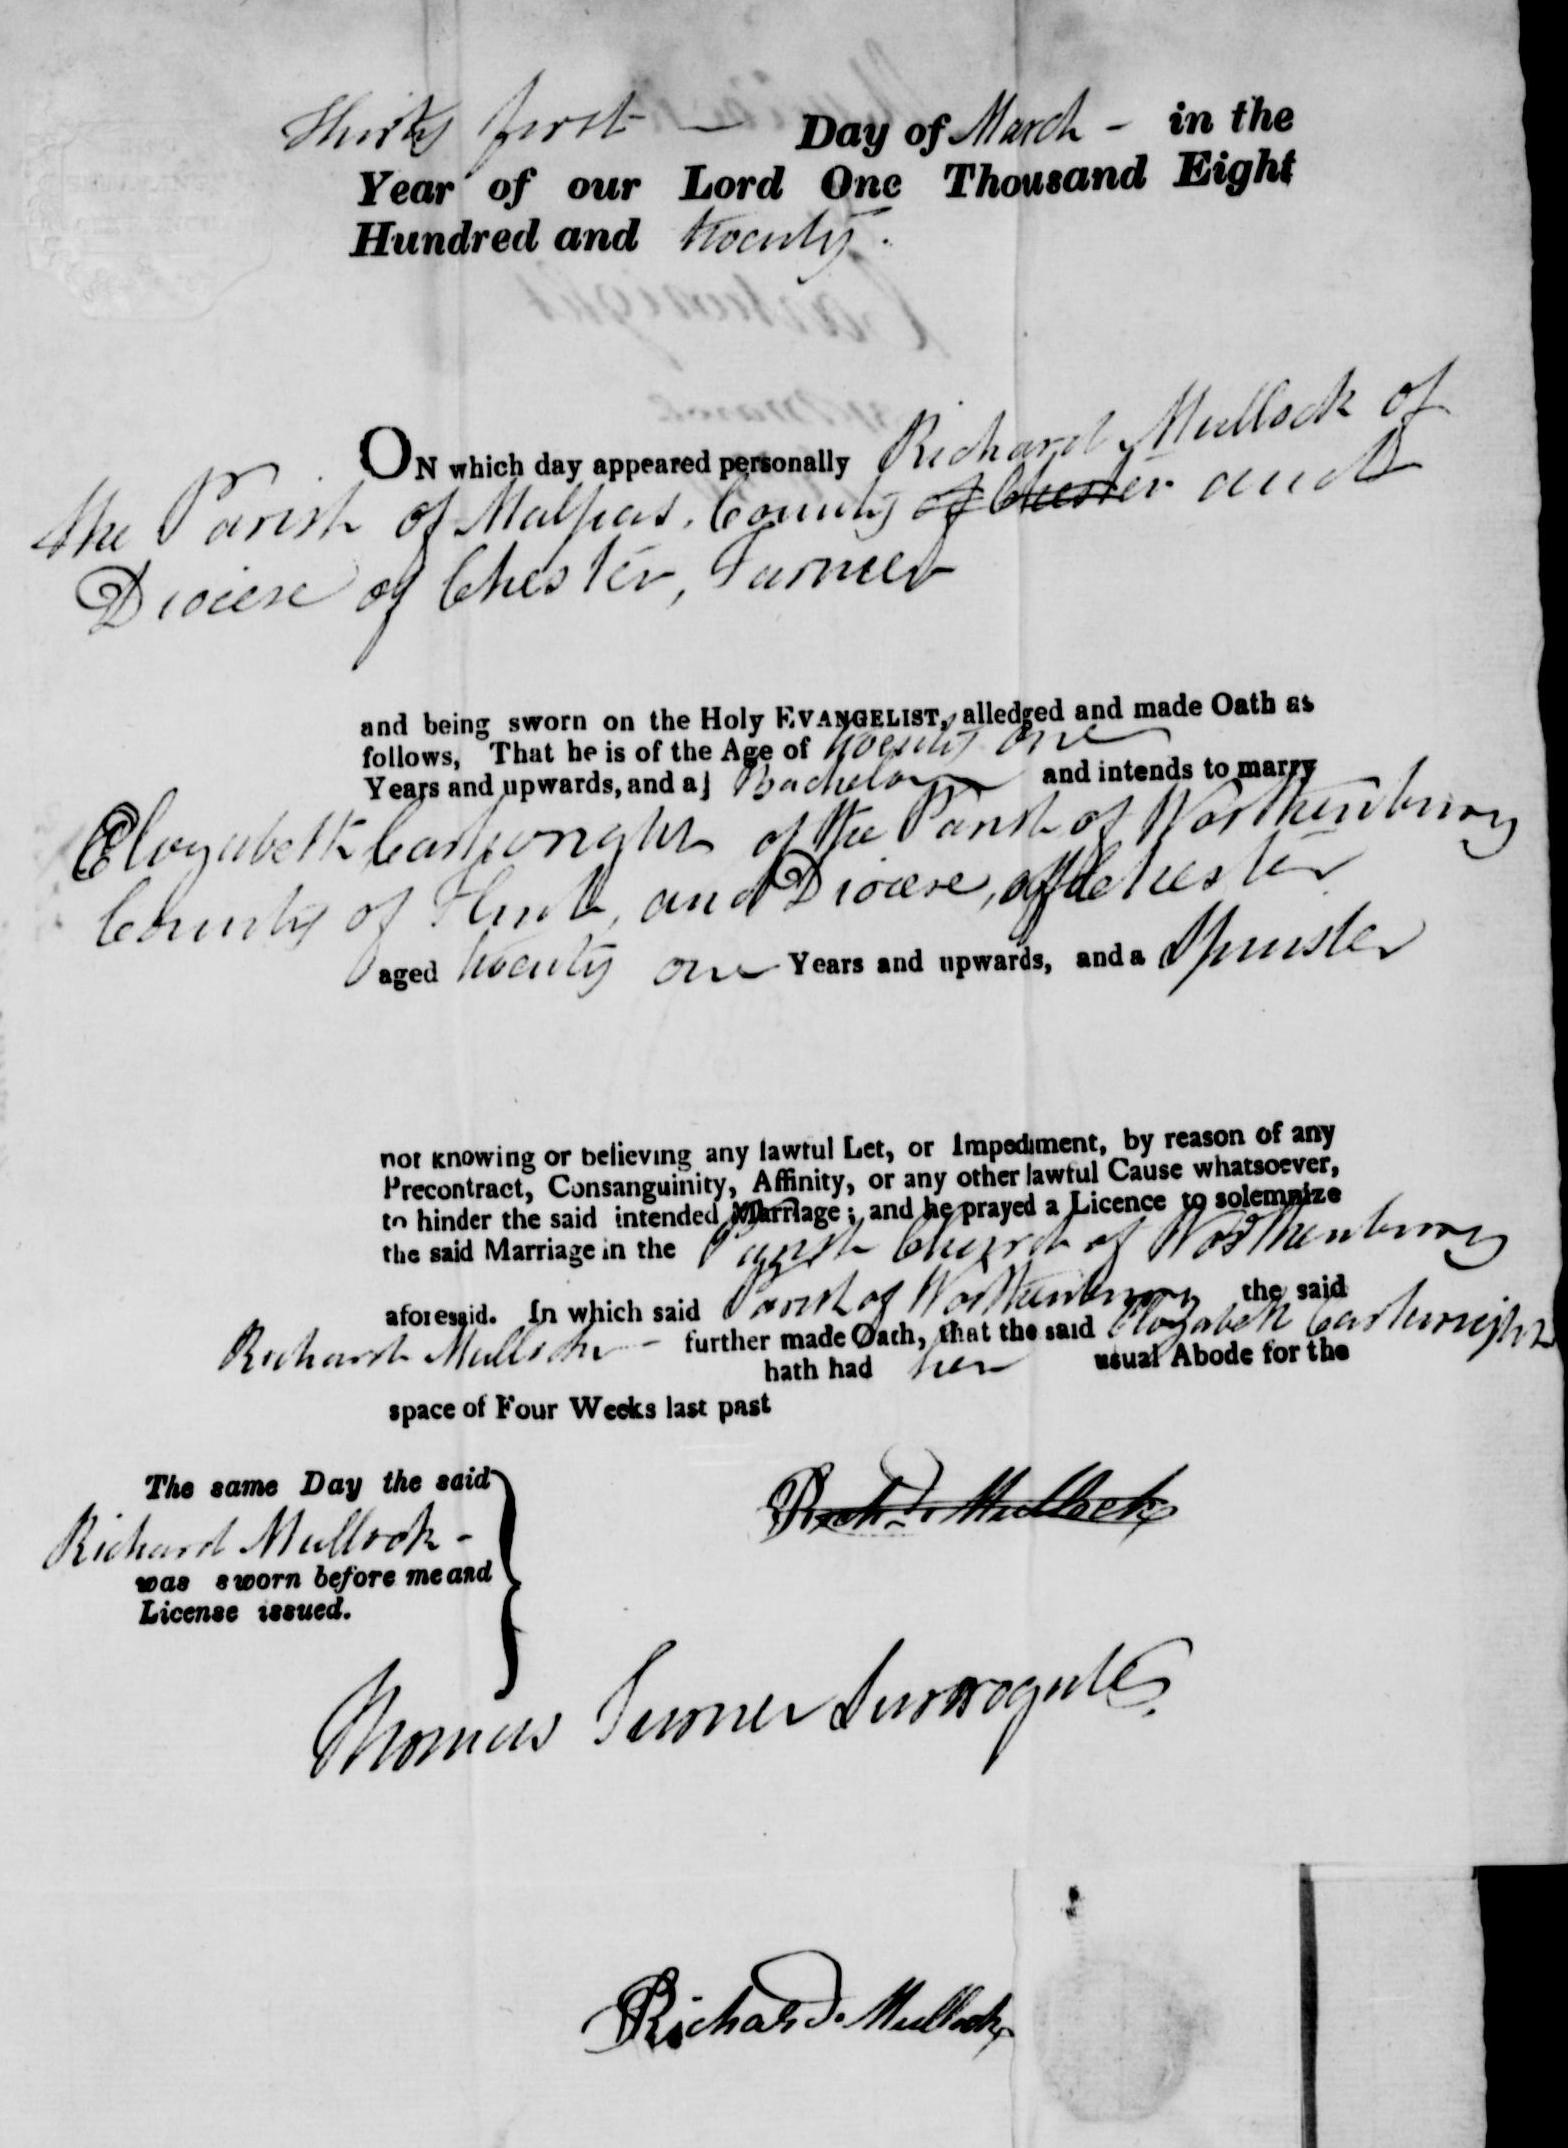 Thirty first — Day of March - in the
Year of our Lord One Thousand Eight
Hundred and twenty.
ON which day appeared personally Richard Mullock of
the Parish of Malpas, County of Chester and
Diocese of Chester, Farmer
and being sworn on the Holy EVANGELIST, alledged and made Oath as
follows, That he is of the Age of twenty one
Years and upwards, and a Bachelor and intends to marry
Elizabeth Cartwright of the Parish of Worthenbury
County of Flint, and Diocese, of Chester
aged twenty one Years and upwards, and a Spinster
not knowing or believing any lawful Let, or Impediment, by reason of any
Precontract, Consanguinity, Affinity, or any other lawful Cause whatsoever,
to hinder the said intended Marriage; and he prayed a Licence to solemnize
the said Marriage in the Parish Church of Worthenbury
aforesaid. In which said Parish of Worthenbury the said
Richard Mullock - further made Oath, that the said Elizabeth Cartwright
hath had her usual Abode for the
space of Four Weeks last past
The same Day the said
Richard Mullock -
was sworn before me and
License issued.
Richd. Mullock
Thomas Turner Surrogate.
Richard Mullock